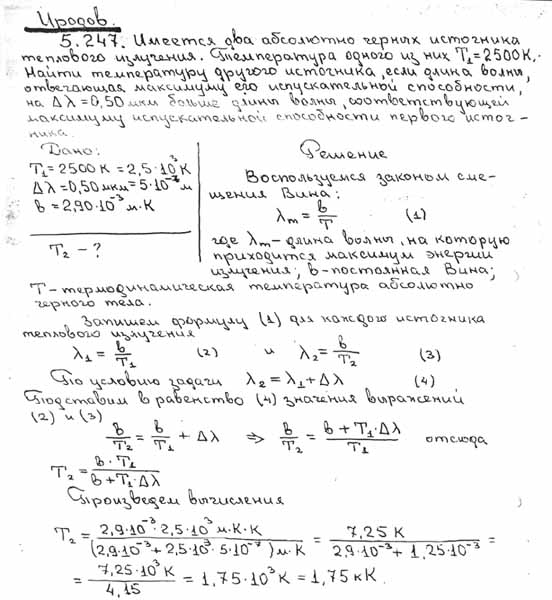 Иродов.
5.247. Имеется два абсолютно черных источника
теплового излучения. Температура одного из них T₁=2500К.
Найти температуру другого источника, если длина волны,
отвечающая максимуму его испускательной способности,
на Δλ=0,50 мкм больше длины волны, соответствующей
максимуму испускательной способности первого источ-
ника.
Дано:
T₁=2500 К = 2,5·10³ К
Δλ=0,50 мкм=5·10⁻⁷ м
в = 2,90·10⁻³ м·К
T₂ - ?
Решение
Воспользуемся законом сме-
щения Вина:
λm = в/T (1)
где λm-длина волны, на которую
приходится максимум энергии
излучения; в-постоянная Вина;
T-термодинамическая температура абсолютно
черного тела.
Запишем формулу (1) для каждого источника
теплового излучения
λ₁ = в/T₁ (2) и λ₂ = в/T₂ (3)
По условию задачи λ₂ = λ₁+Δλ (4)
Подставим в равенство (4) значения выражений
(2) и (3)
в/T₂ = в/T₁ + Δλ ⇒ в/T₂ = (в + T₁·Δλ)/T₁ отсюда
T₂ = в·T₁/(в+T₁·Δλ)
Произведем вычисления
T₂ = 2,9·10⁻³·2,5·10³ м·К·К/(2,9·10⁻³+2,5·10³·5·10⁻⁷) м·К = 7,25 К/2,9·10⁻³+1,25·10⁻³ =
= 7,25·10³ К/4,15 = 1,75·10³ К = 1,75 кК.